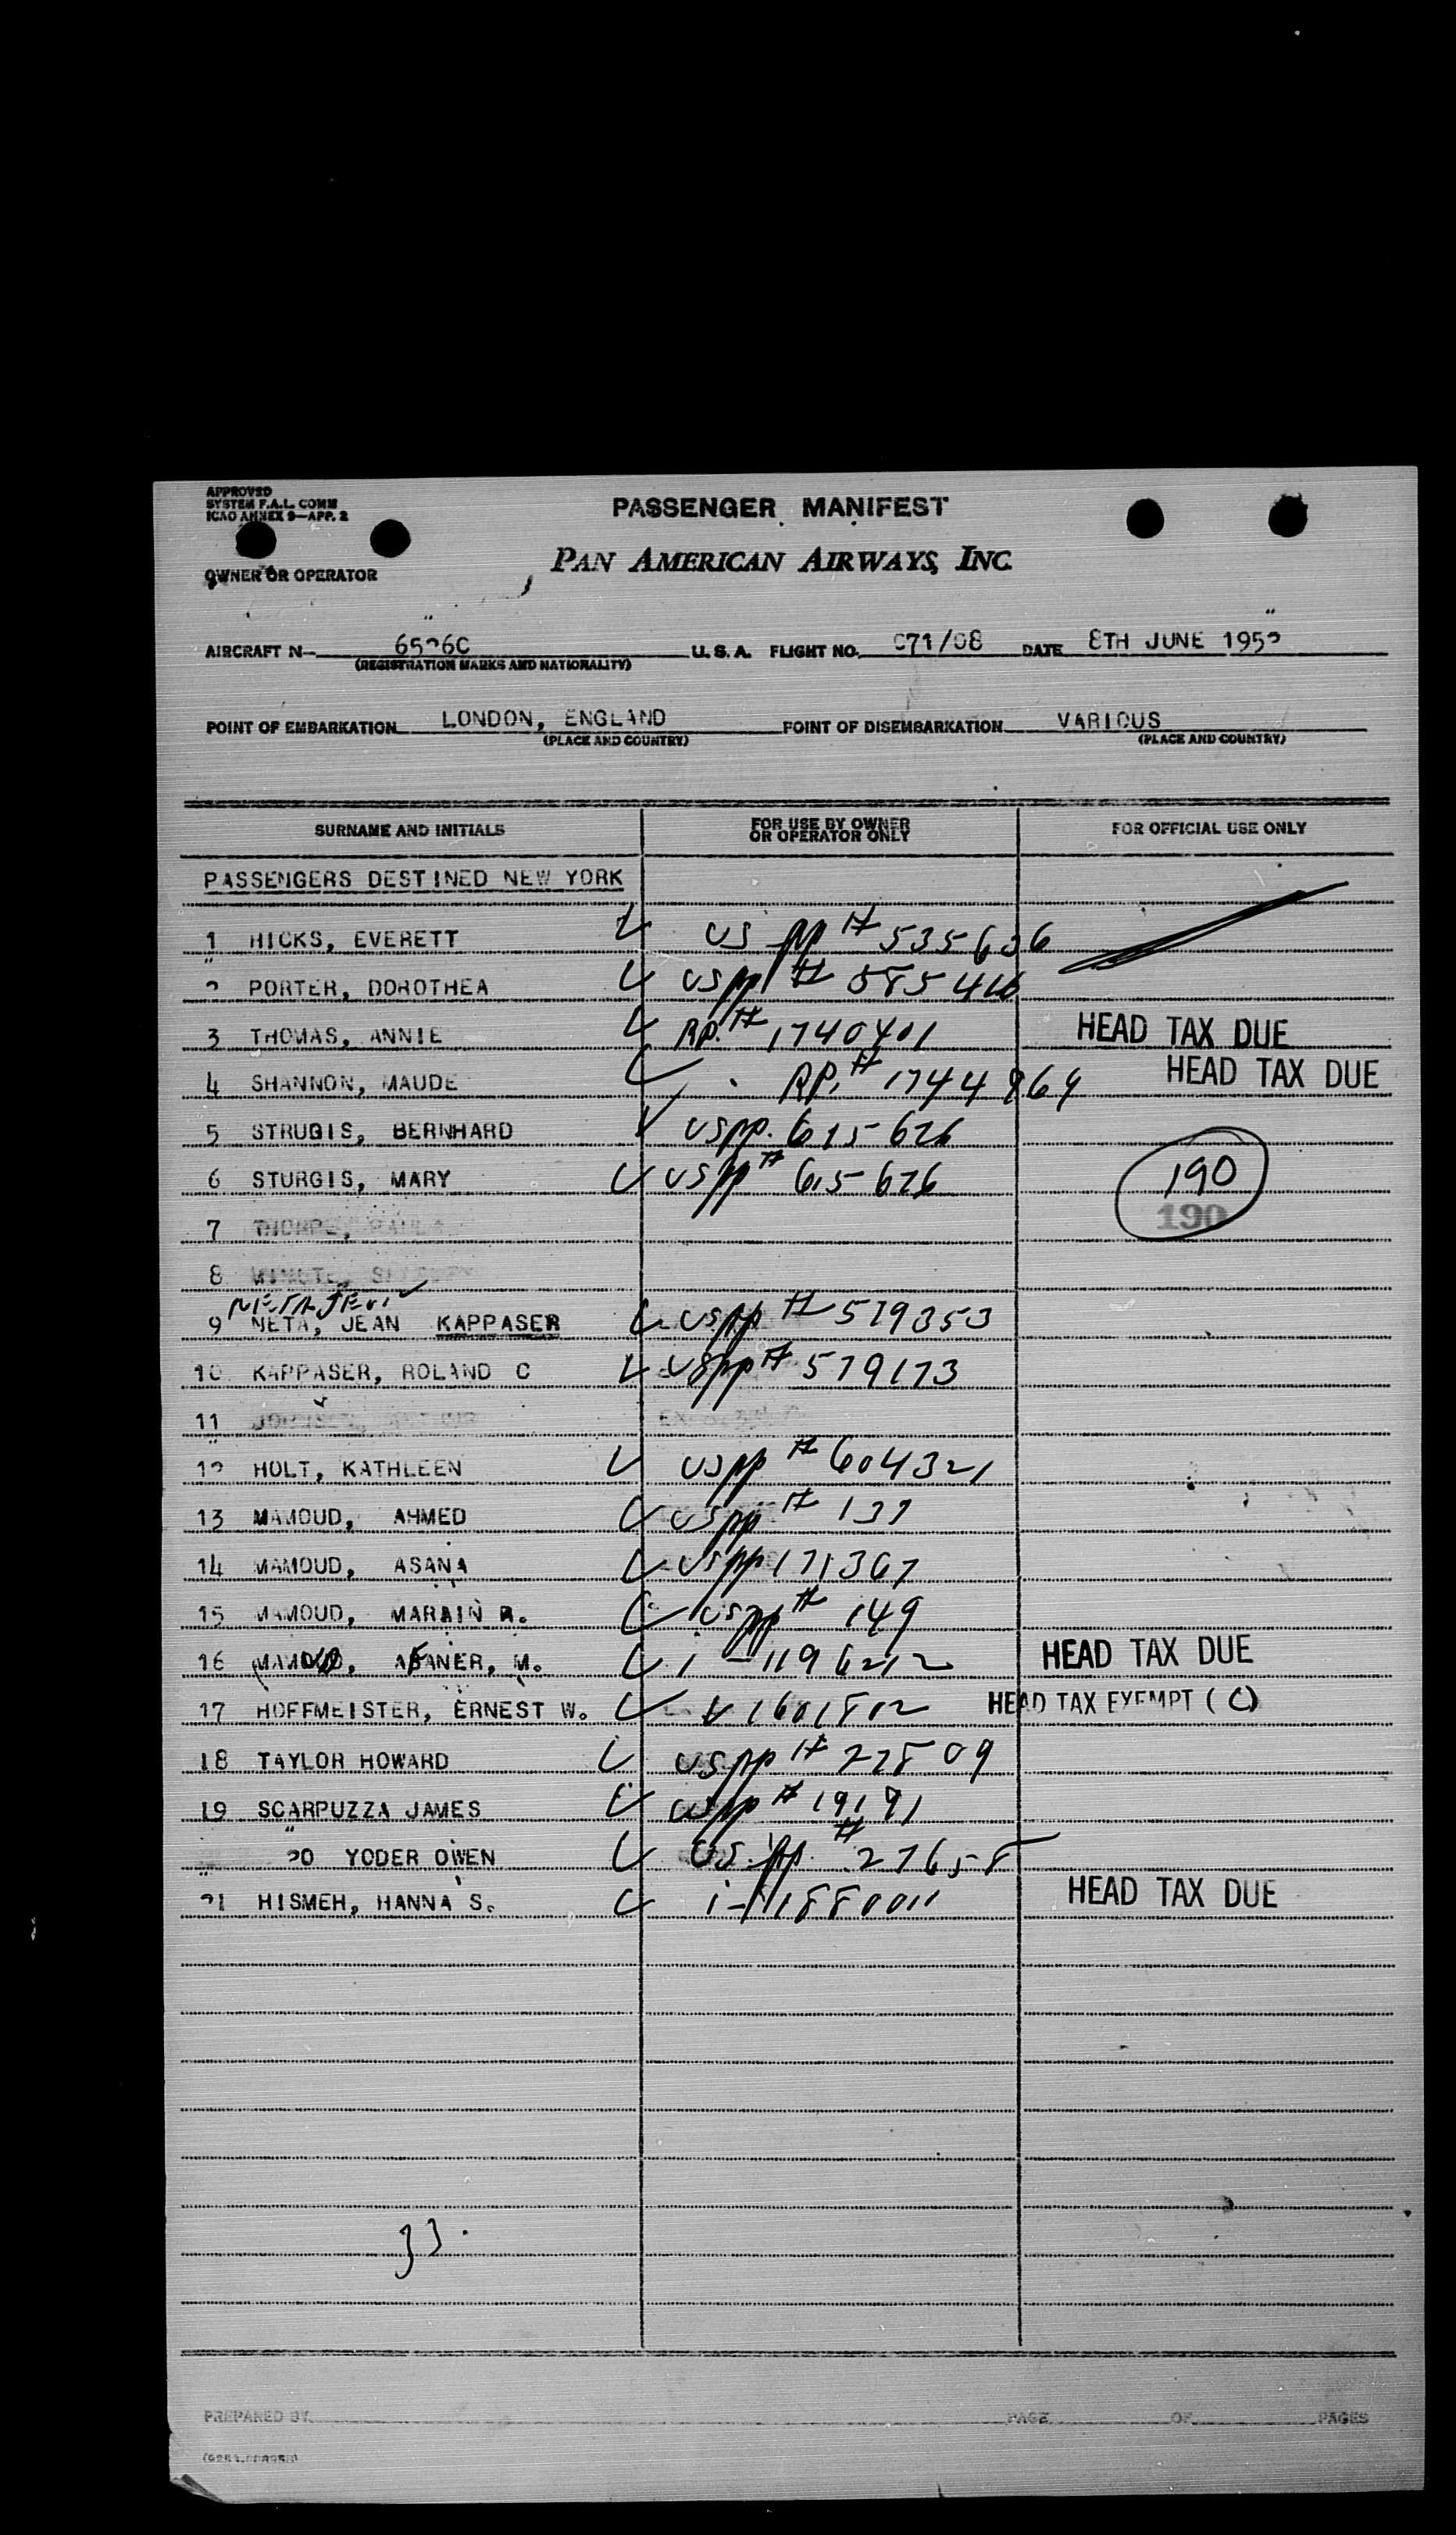 APPROVED
SYSTEM F.A.L. COMM
ICAO ANNEX 9—APP. 2
PASSENGER MANIFEST
PAN AMERICAN AIRWAYS, INC
OWNER OR OPERATOR
AIRCRAFT N— 6526C U.S.A. FLIGHT NO. 071/08 DATE 8TH JUNE 1952
(REGISTRATION MARKS AND NATIONALITY)
POINT OF EMBARKATION LONDON, ENGLAND POINT OF DISEMBARKATION VARIOUS
(PLACE AND COUNTRY) (PLACE AND COUNTRY)
SURNAME AND INITIALS FOR USE BY OWNER OR OPERATOR ONLY FOR OFFICIAL USE ONLY
PASSENGERS DESTINED NEW YORK
1 HICKS, EVERETT US pp # 535636
2 PORTER, DOROTHEA US pp #
3 THOMAS, ANNIE RP. # 1740401 HEAD TAX DUE
4 SHANNON, MAUDE RP. # 1744969 HEAD TAX DUE
5 STRUGIS, BERNHARD US pp. 615626
6 STURGIS, MARY US pp # 615626 190
190
7
8
9 NETA, JEAN KAPPASER US pp # 519353
10 KAPPASER, ROLAND C US pp # 579173
11
12 HOLT, KATHLEEN US pp # 604321
13 MAMOUD, AHMED US pp # 137
14 MAMOUD, ASANA US pp 171367
15 MAMOUD, MARAIN R. US pp # 149
16 M. HEAD TAX DUE
17 HOFFMEISTER, ERNEST W. V 1601802 HEAD TAX EXEMPT (C)
18 TAYLOR HOWARD US pp # 22809
19 SCARPUZZA JAMES US pp # 19191
20 YODER OWEN US. pp. # 27658
21 HISMEH, HANNA S. HEAD TAX DUE
33.
PREPARED BY PAGE OF PAGES